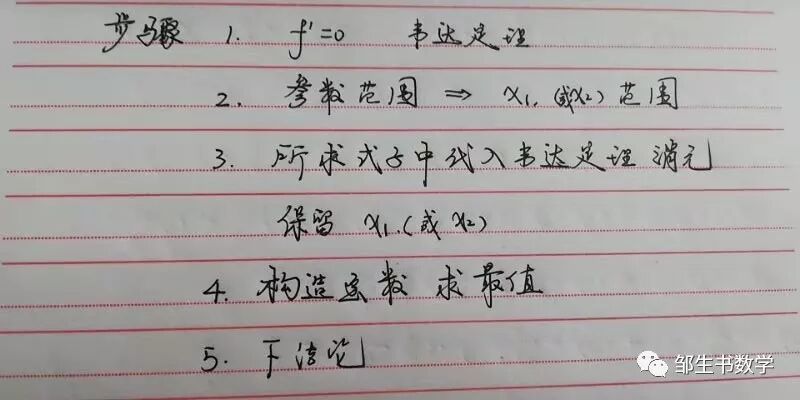 步骤 1. f'=0 韦达定理
2. 参数范围 ⇒ x₁.(或x₂) 范围
3. 所求式子中代入韦达定理 消元
保留 x₁.(或 x₂)
4. 构造函数 求最值
5. 下结论
邹生书数学